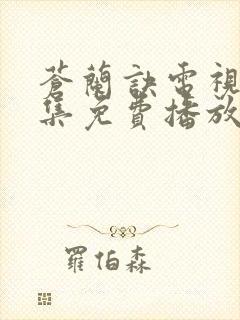 蒼蘭訣電視
集免費播放
羅伯森